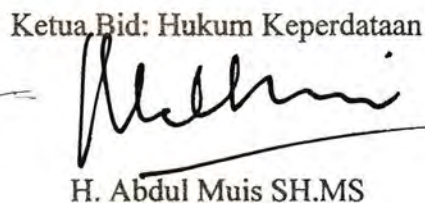 Ketua Bid: Hukum Keperdataan
H. Abdul Muis SH.MS